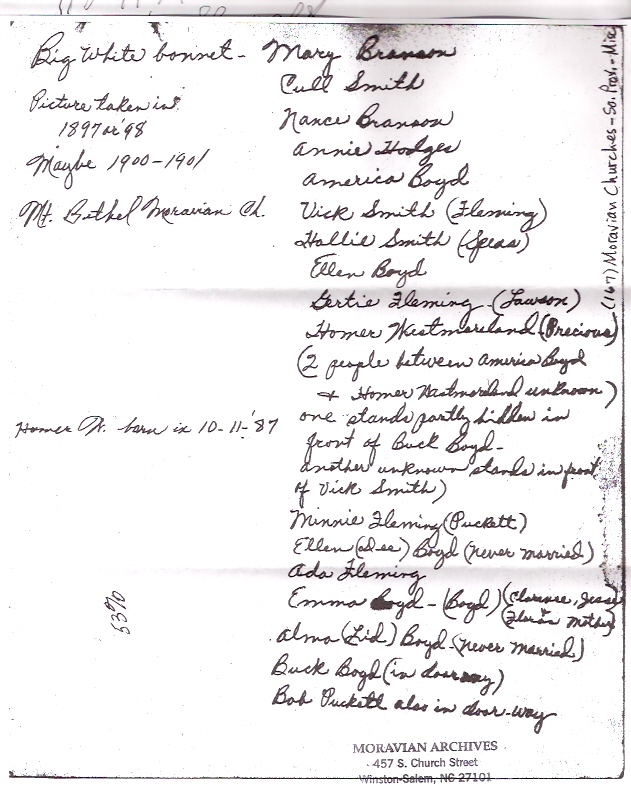 Big White bonnet - Mary Branson
Cull Smith
Picture taken in
1897 or '98
Maybe 1900-1901
Mt. Bethel Moravian Ch.
Nance Branson
Annie Hodges
America Boyd
Vick Smith (Fleming)
Hallie Smith (Speas)
Ellen Boyd
Gertie Fleming (Lawson)
Homer Westmoreland (Precious)
(2 people between America Boyd
& Homer Westmoreland unknown)
Homer W. born in 10-11-'87
one stands partly hidden in
front of Buck Boyd -
another unknown stands in front
of Vick Smith)
Minnie Fleming (Puckett)
Ellen Boyd (never married)
Ada Fleming
Emma Boyd - (Boyd) (Clarence, Jesse
Mother)
Alma (Lid) Boyd - (never married)
Buck Boyd (in doorway)
Bob Puckett also in door-way
53%
(167) Moravian Churches - So. Prov. - Mic
MORAVIAN ARCHIVES
457 S. Church Street
Winston-Salem, NC 27101